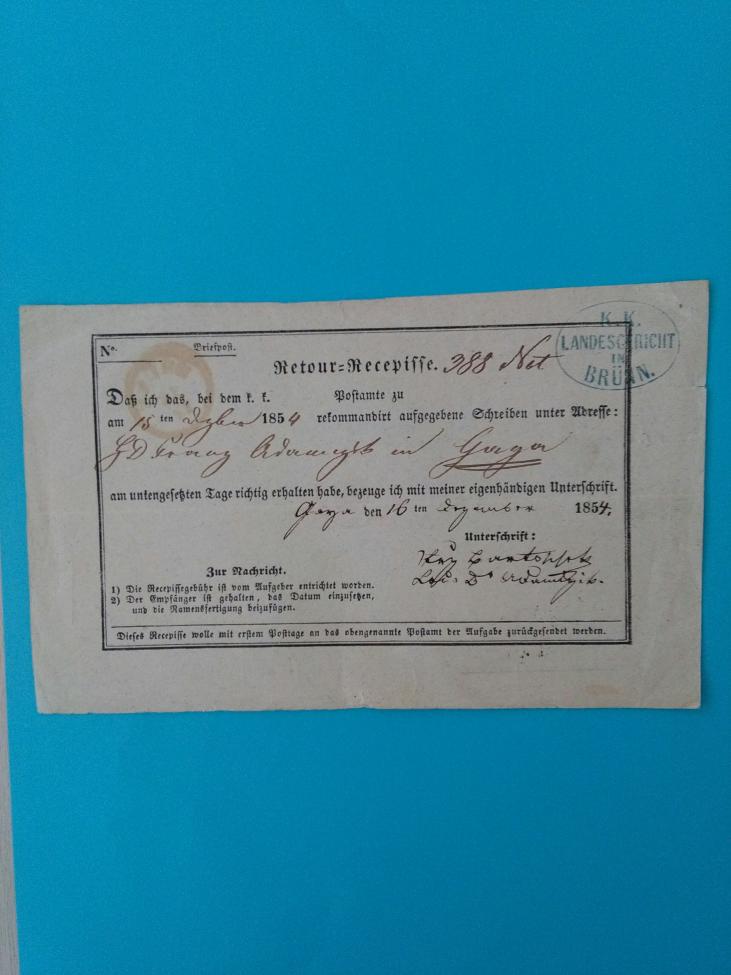 K. K.
LANDESGERICHT
IN
BRÜNN.
No.
Briefpost.
Retour-Recepisse. 388
Daß ich das, bei dem k. k. Postamte zu
am 15 ten Dezber 1854 rekommandirt aufgegebene Schreiben unter Adresse:
Franz Adamczik in Gaya
am untengesetzten Tage richtig erhalten habe, bezeuge ich mit meiner eigenhändigen Unterschrift.
Gaya den 16 ten Dezember 1854.
Unterschrift:
Dr Adamczik.
Zur Nachricht.
1) Die Recepissegebühr ist vom Aufgeber entrichtet worden.
2) Der Empfänger ist gehalten, das Datum einzusetzen,
und die Namensfertigung beizufügen.
Dieses Recepisse wolle mit erstem Posttage an das obengenannte Postamt der Aufgabe zurückgesendet werden.